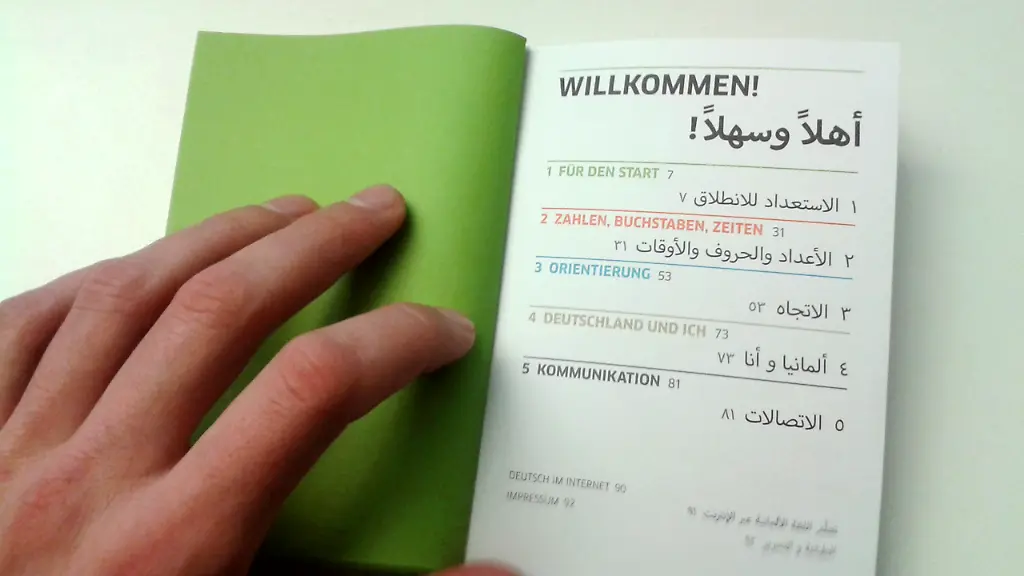 WILLKOMMEN!
أهلاً وسهلاً!
1 FÜR DEN START 7
١ الاستعداد للانطلاق ٧
2 ZAHLEN, BUCHSTABEN, ZEITEN 31
٢ الأعداد والحروف والأوقات ٣١
3 ORIENTIERUNG 53
٣ الاتجاه ٥٣
4 DEUTSCHLAND UND ICH 73
٤ ألمانيا و أنا ٧٣
5 KOMMUNIKATION 81
٥ الاتصالات ٨١
DEUTSCH IM INTERNET 90
اللغة الألمانية عبر الإنترنت
IMPRESSUM 92